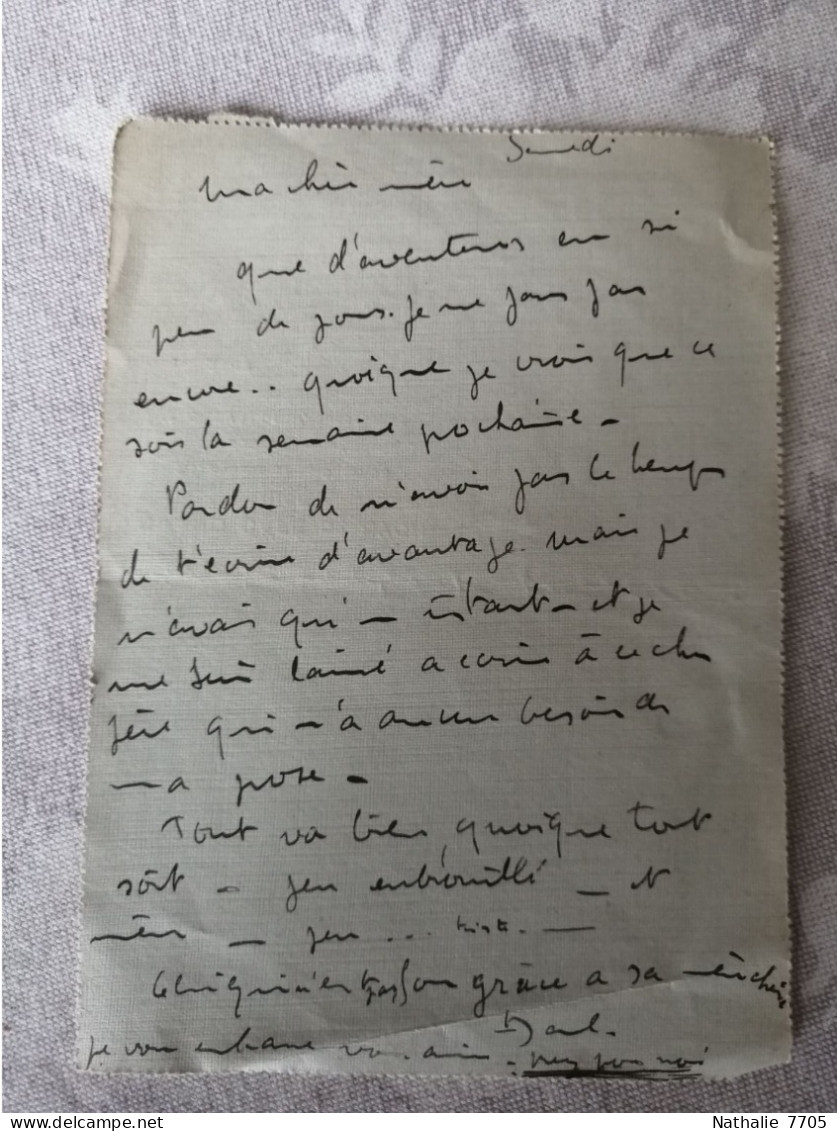 Samedi
Ma chère mère
que d'aventures en si
peu de jours. je ne pars pas
encore.. quoique je crois que ce
sois la semaine prochaine -
Pardon de n'avoir pas le temps
de t'écrire d'avantage. mais je
n'avais qu'un instant - et je
me suis laissé à ce cher
père qui n'a aucun besoin de
ma prose -
Tout va bien, quoique tout
soit - peu embrouillé - et
même - peu ... triste. -
Celui qui n'est pas grâce a sa mère chérie
Paul.
je vous embrasse - priez pour moi
Nathalie 7705